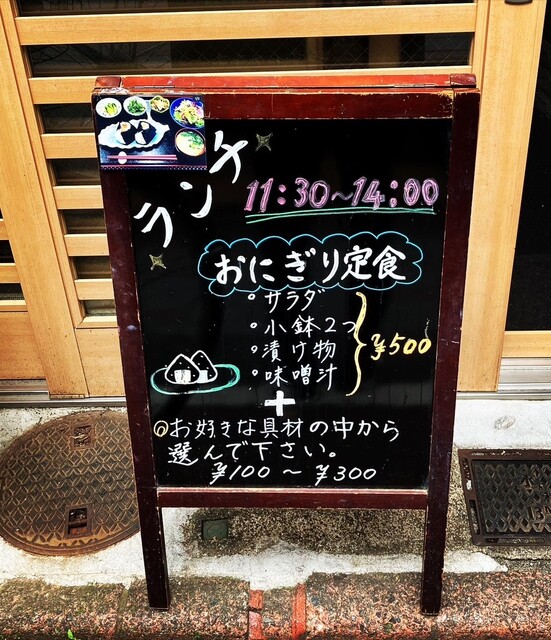 ランチ
11:30~14:00
おにぎり定食
・サラダ
・小鉢2つ
・漬け物
・味噌汁
¥500
+
◎お好きな具材の中から
選んで下さい。
¥100~¥300